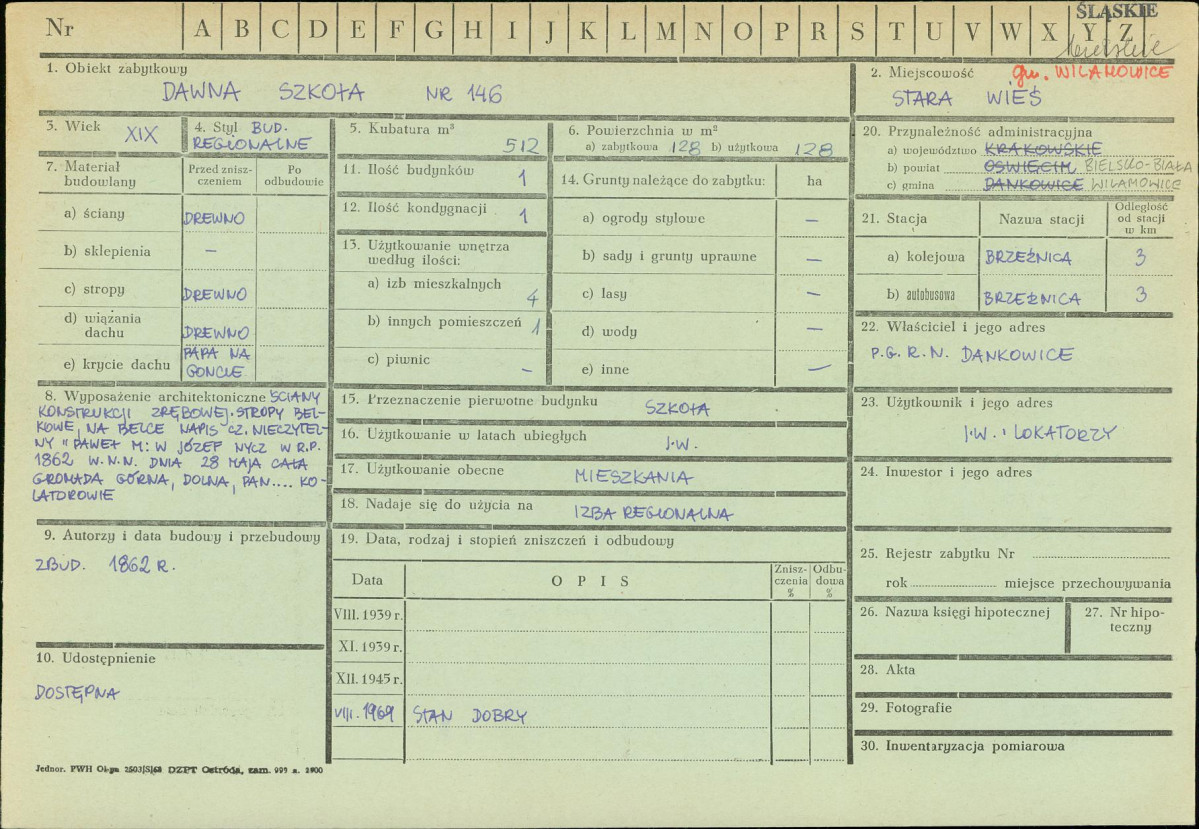 Nr A B C D E F G H I J K L M N O P R S T U V W X Y Z
ŚLĄSKIE
1. Obiekt zabytkowy
DAWNA SZKOŁA NR 146
2. Miejscowość gm. WILAMOWICE
STARA WIEŚ
3. Wiek XIX
4. Styl BUD.
REGIONALNE
5. Kubatura m³
512
6. Powierzchnia w m²
a) zabytkowa 128 b) użytkowa 128
20. Przynależność administracyjna
a) województwo KRAKOWSKIE
b) powiat OŚWIĘCIM BIELSKO-BIAŁA
c) gmina DANKOWICE WILAMOWICE
7. Materiał
budowlany
Przed znisz-
czeniem
Po
odbudowie
a) ściany DREWNO
b) sklepienia –
c) stropy DREWNO
d) wiązania
dachu DREWNO
e) krycie dachu PAPA NA
GONCIE
11. Ilość budynków 1
12. Ilość kondygnacji 1
13. Użytkowanie wnętrza
według ilości:
a) izb mieszkalnych 4
b) innych pomieszczeń 1
c) piwnic –
14. Grunty należące do zabytku: ha
a) ogrody stylowe –
b) sady i grunty uprawne –
c) lasy –
d) wody –
e) inne –
21. Stacja Nazwa stacji
Odległość
od stacji
w km
a) kolejowa BRZEŹNICA 3
b) autobusowa BRZEŹNICA 3
22. Właściciel i jego adres
P.G.R.N. DANKOWICE
8. Wyposażenie architektoniczne ŚCIANY
KONSTRUKCJI ZRĘBOWEJ. STROPY BEL-
KOWE, NA BELCE NAPIS CZ. NIECZYTEL-
NY "PAWEŁ M: W JÓZEF NYCZ W R.P.
1862 W.N.N. DNIA 28 MAJA CAŁA
GROMADA GÓRNA, DOLNA, PAN.... KO-
LATOROWIE
15. Przeznaczenie pierwotne budynku SZKOŁA
16. Użytkowanie w latach ubiegłych J.W.
17. Użytkowanie obecne MIESZKANIA
18. Nadaje się do użycia na IZBA REGIONALNA
23. Użytkownik i jego adres
J.W. i LOKATORZY
24. Inwestor i jego adres
9. Autorzy i data budowy i przebudowy
ZBUD. 1862 R.
19. Data, rodzaj i stopień zniszczeń i odbudowy
Data OPIS
Znisz-
czenia
%
Odbu-
dowa
%
VIII. 1939 r.
XI. 1939 r.
XII. 1945 r.
VIII. 1969 STAN DOBRY
25. Rejestr zabytku Nr
rok miejsce przechowywania
26. Nazwa księgi hipotecznej
27. Nr hipo-
teczny
10. Udostępnienie
DOSTĘPNA
28. Akta
29. Fotografie
30. Inwentaryzacja pomiarowa
Jednor. PWH DZPT Ostróda, zam.